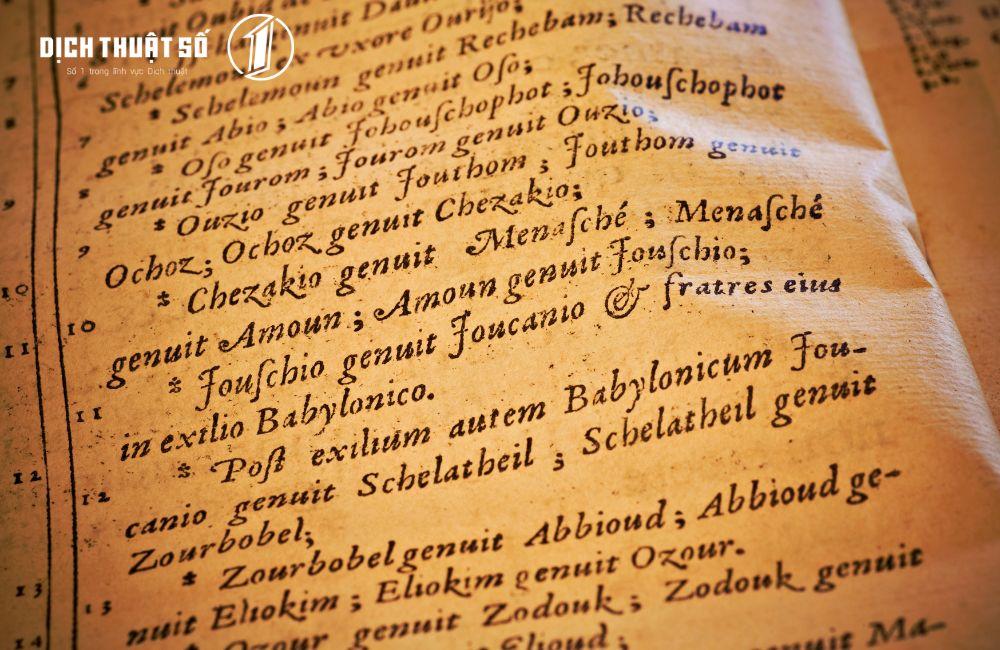 DỊCH THUẬT SỐ 1
Số 1 trong lĩnh vực Dịch thuật
7 Schelemoun ex vxore Ourijo;
* Schelemoun genuit Rechebam; Rechebam
7 genuit Abio; Abio genuit Oſo;
8 * Oſo genuit Johouſchophot; Johouſchophot
8 genuit Jourom; Jourom genuit Ouzio;
9 * Ouzio genuit Jouthom; Jouthom genuit
9 Ochoz; Ochoz genuit Chezakio;
10 * Chezakio genuit Menaſché; Menaſché
10 genuit Amoun; Amoun genuit Jouſchio;
11 * Jouſchio genuit Joucanio & fratres eius
11 in exilio Babylonico.
12 * Poſt exilium autem Babylonicum Jou-
12 canio genuit Schelatheil; Schelatheil genuit
Zourbobel;
13 * Zourbobel genuit Abbioud; Abbioud ge-
13 nuit Eliokim; Eliokim genuit Ozour.
14 * Ozour genuit Zodouk; Zodouk genuit
Elioud; genuit Ma-